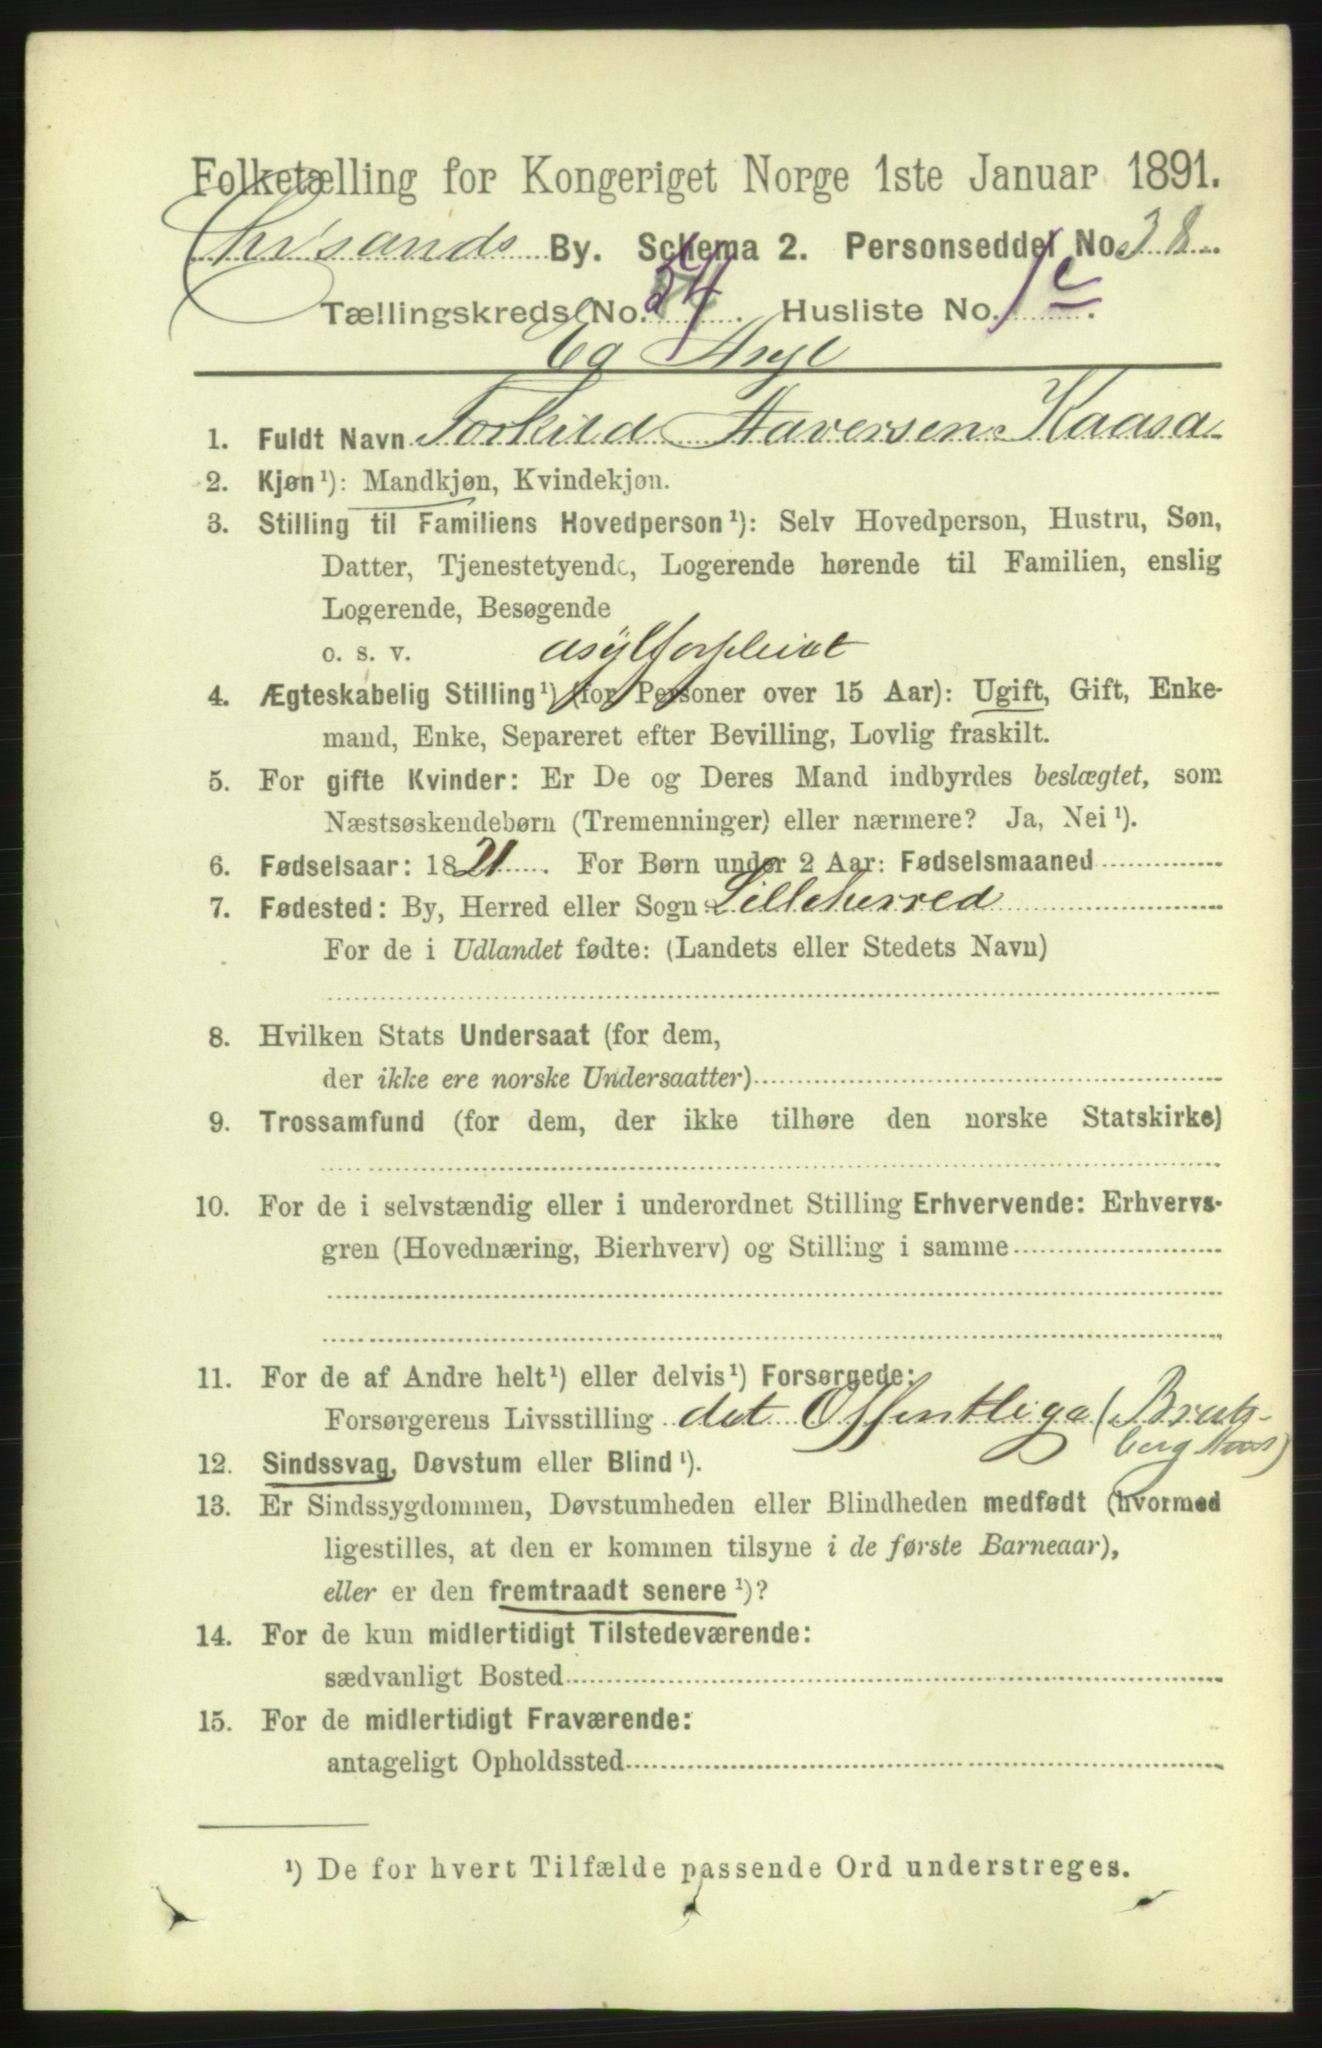 Folketælling for Kongeriget Norge 1ste Januar 1891.
Chr'sands By. Schema 2. Personseddel No. 38.
Tællingskreds No. 54. Husliste No. 1c.
Eg Asyl
1. Fuldt Navn Torkild Haversen Kaasa
2. Kjøn¹): Mandkjøn, Kvindekjøn.
3. Stilling til Familiens Hovedperson¹): Selv Hovedperson, Hustru, Søn,
Datter, Tjenestetyende, Logerende hørende til Familien, enslig
Logerende, Besøgende
o. s. v. asylforpleiet
4. Ægteskabelig Stilling¹) (for Personer over 15 Aar): Ugift, Gift, Enke-
mand, Enke, Separeret efter Bevilling, Lovlig fraskilt.
5. For gifte Kvinder: Er De og Deres Mand indbyrdes beslægtet, som
Næstsøskendebørn (Tremenninger) eller nærmere? Ja, Nei¹).
6. Fødselsaar: 1821. For Børn under 2 Aar: Fødselsmaaned
7. Fødested: By, Herred eller Sogn Lilleherred
For de i Udlandet fødte: (Landets eller Stedets Navn)
8. Hvilken Stats Undersaat (for dem,
der ikke ere norske Undersaatter)
9. Trossamfund (for dem, der ikke tilhøre den norske Statskirke)
10. For de i selvstændig eller i underordnet Stilling Erhvervende: Erhvervs-
gren (Hovednæring, Bierhverv) og Stilling i samme
11. For de af Andre helt¹) eller delvis¹) Forsørgede:
Forsørgerens Livsstilling det Offentlige (Brats-
berg
12. Sindssvag, Døvstum eller Blind¹).
13. Er Sindssygdommen, Døvstumheden eller Blindheden medfødt (hvormed
ligestilles, at den er kommen tilsyne i de første Barneaar),
eller er den fremtraadt senere¹)?
14. For de kun midlertidigt Tilstedeværende:
sædvanligt Bosted
15. For de midlertidigt Fraværende:
antageligt Opholdssted
¹) De for hvert Tilfælde passende Ord understreges.